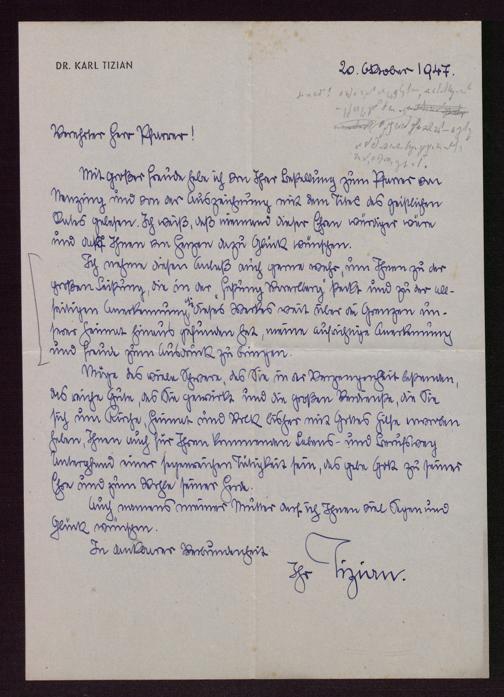 DR. KARL TIZIAN
20. Oktober 1947.
Verehrter Herr Pfarrer!
Mit großer Freude habe ich von Ihrer Bestellung zum Pfarrer von
Nenzing und von der Auszeichnung mit dem Titel des geistlichen
Rates gelesen. Ich weiß, daß niemand dieser Ehren würdiger wäre
und darf Ihnen von Herzen dazu Glück wünschen.
Ich nehme diesen Anlaß auch gerne wahr, um Ihnen zu der
großen Leistung, die in der "Vorarlberg" steckt und zu der all-
seitigen Anerkennung, die dieses Werkes weit über die Grenzen un-
serer Heimat hinaus gefunden hat, meine aufrichtige Anerkennung
und Freude zum Ausdruck zu bringen.
Möge das viele Schwere, das Sie in der Vergangenheit bestanden,
das reiche Gute, das Sie gewirkt und die großen Verdienste, die Sie
sich um Kirche, Heimat und Volk bisher mit Gottes Hilfe erworben
haben, Ihnen auch für Ihren kommenden Lebens- und Berufsweg
Unterpfand einer segensreichen Tätigkeit sein, das gebe Gott zu seiner
Ehre und zum Wohle seiner Herde.
Auch namens meiner Mutter darf ich Ihnen viel Segen und
Glück wünschen.
In dankbarer Verbundenheit
Ihr Tizian.